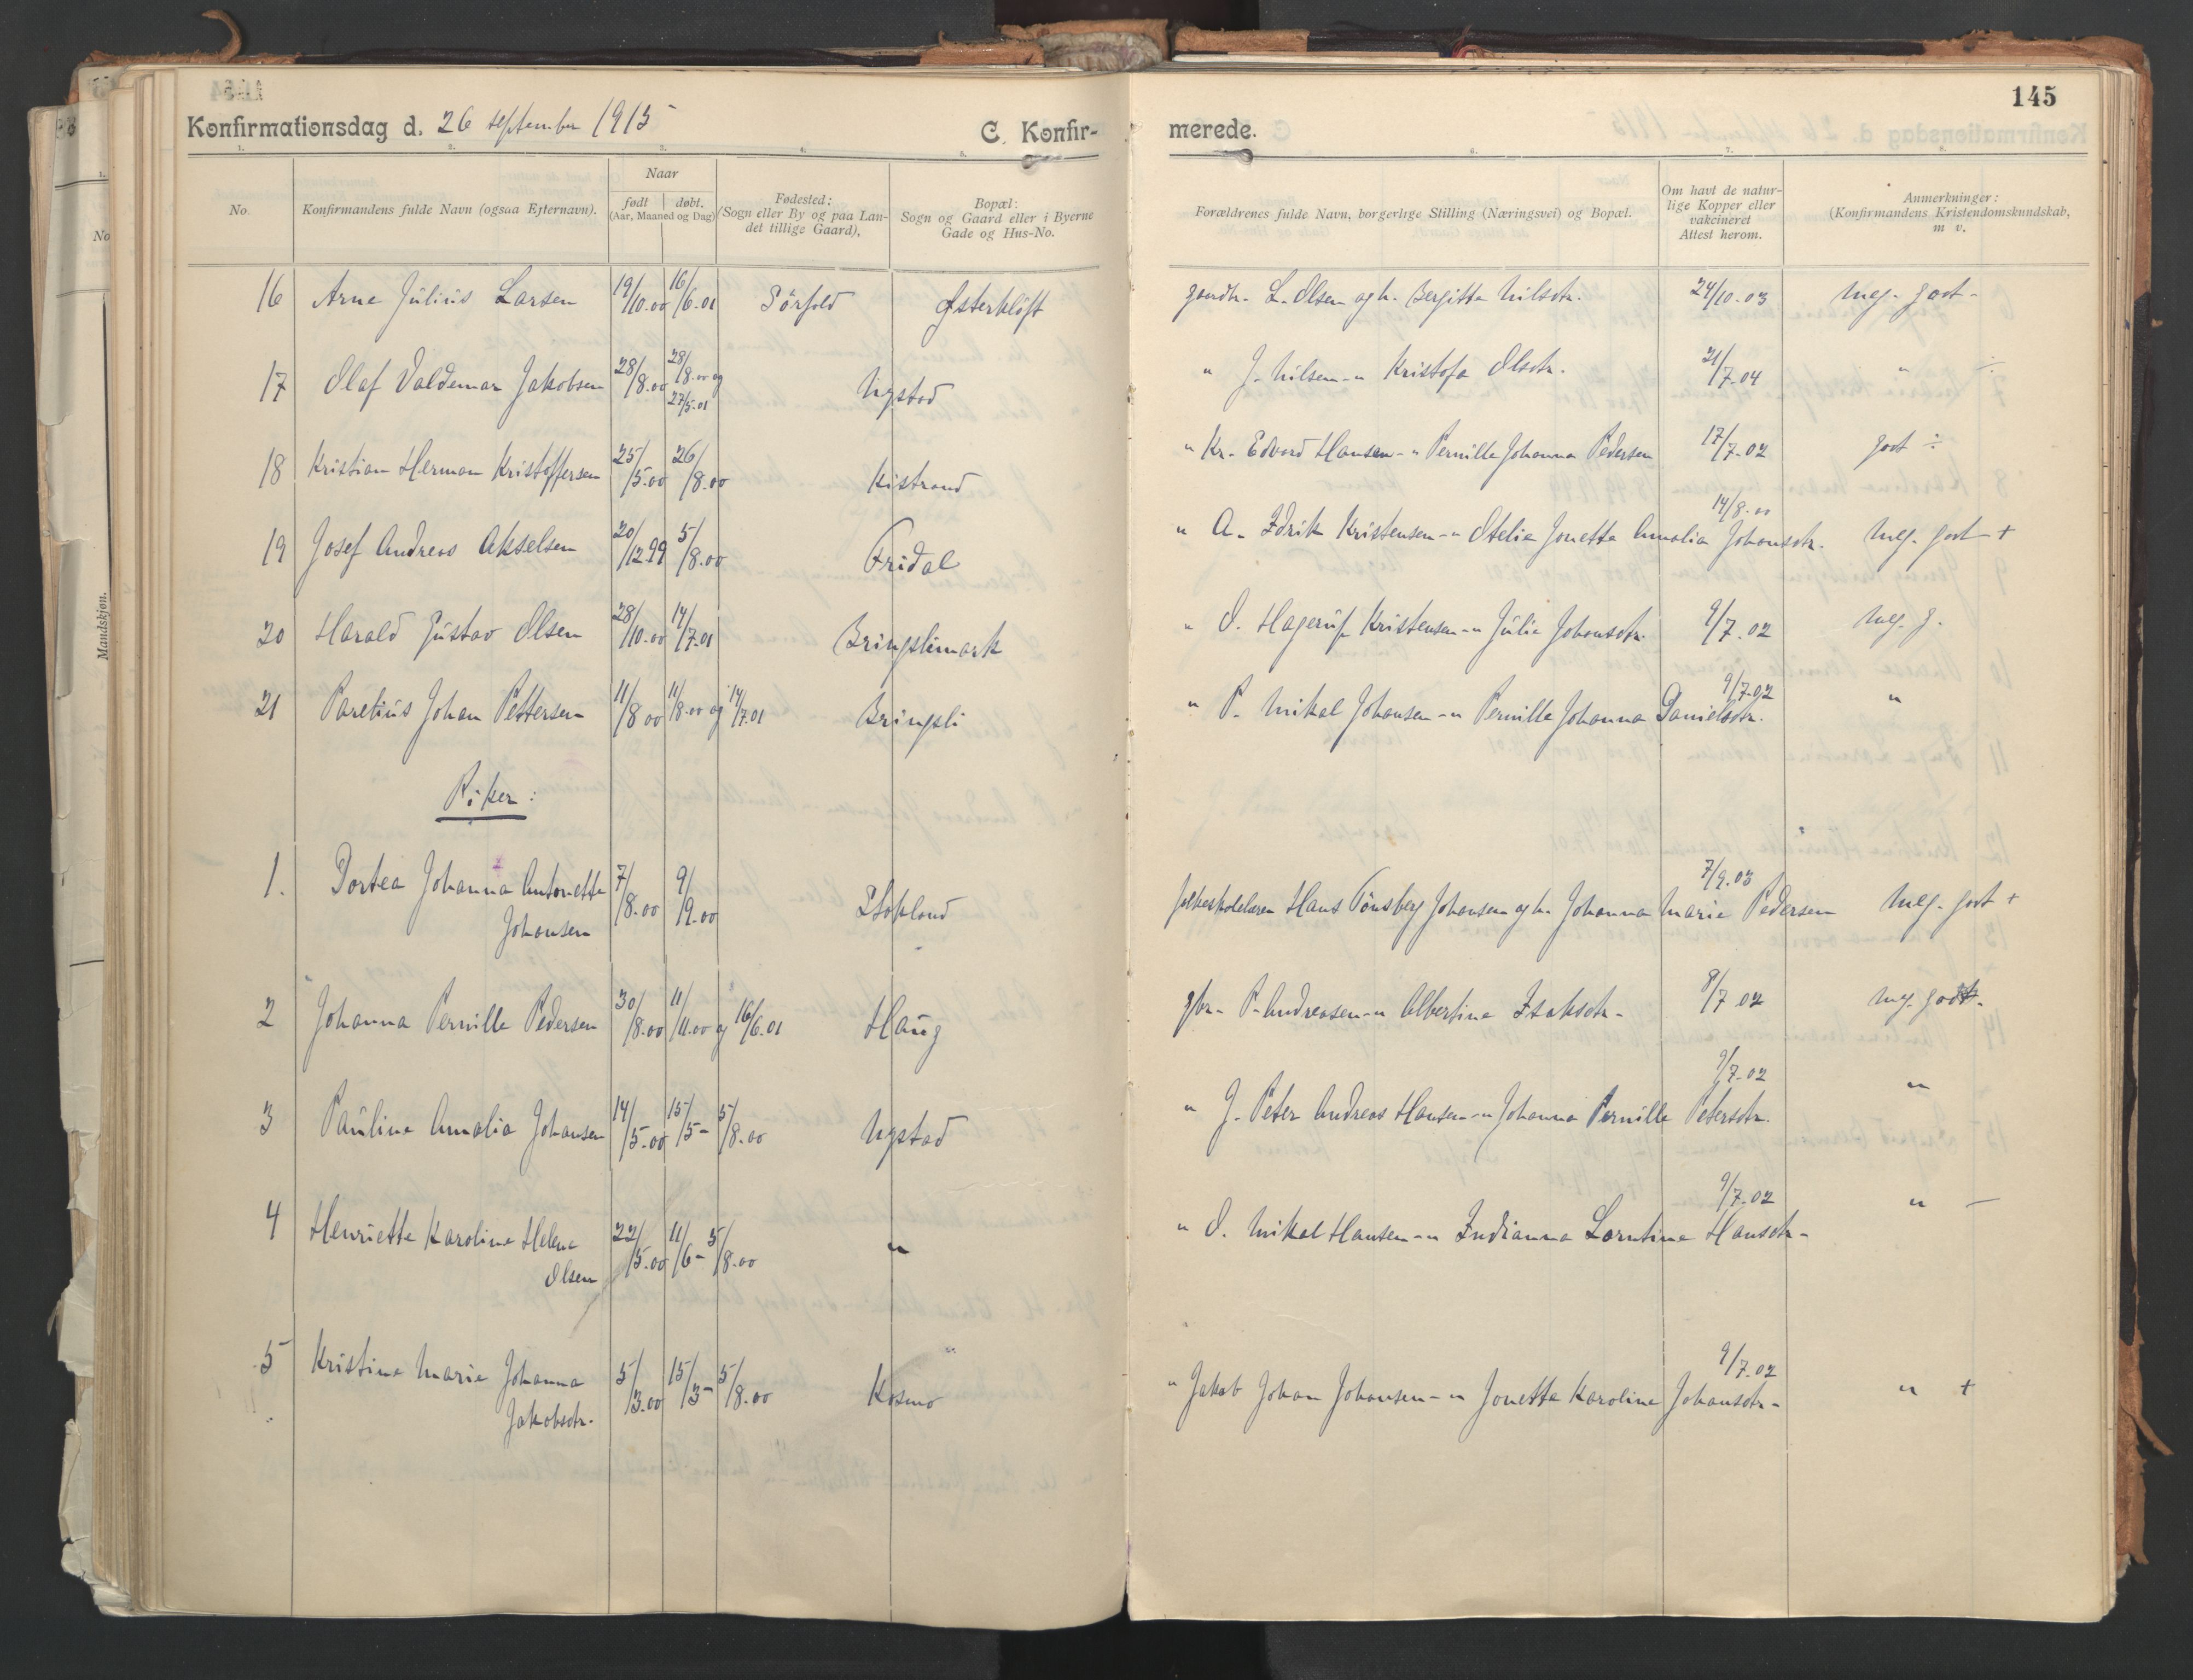 Konfirmationsdag d. 26 september 1915
C. Konfir-
merede.
145
1. 2. 3. 4. 5. 6. 7. 8.
No.
Konfirmandens fulde Navn (ogsaa Efternavn).
Naar
født
døbt.
(Aar, Maaned og Dag)
Fødested:
(Sogn eller By og paa Lan-
det tillige Gaard).
Bopæl:
Sogn og Gaard eller i Byerne
Gade og Hus-No.
Forældrenes fulde Navn, borgerlige Stilling (Næringsvei) og Bopæl.
Om havt de natur-
lige Kopper eller
vakcineret
Attest herom.
Anmerkninger:
(Konfirmandens Kristendomskundskab,
m v.
16 Arne Julius Larsen 19/10.00 16/6.01 Sørfold Østerkløft gaardbr. L. Olsen og h. Bergitte Nilsdtr. 24/10-03 meg. godt -
17 Olaf Valdemar Jakobsen 28/8.00 28/8.00 og 27/5.01 Nystad " J. Nilsen - " Kristofa Olsdtr. 21/7-04 " ÷
18 Kristian Herman Kristoffersen 25/5.00 26/8.00 Kistrand " Kr. Edvard Hansen - " Pernille Johanna Pedersen 17/7-02 godt ÷
19 Josef Andreas Akselsen 20/12 99 5/8.00 Fridal " A. Edrik Kristensen - " Otelie Jonette Amalia Johansdtr. 14/8.00 Meg. godt +
20 Harald Gustav Olsen 28/10.00 14/7.01 Bringslimark " O. Hagerup Kristensen - " Julie Johansdtr. 9/7.02 meg. g.
21 Paretius Johan Pettersen 11/8 00 11/8.00 og 14/7.01 Bringsli " P. Mikal Johansen - " Pernille Johanna Danielsdtr. 9/7.02 "
Piker:
1. Dortea Johanna Antonette 7/8.00 9/9.00 Stokland folkeskolelærer Hans Tønsberg Johansen og h. Johanna Marie Pedersen 7/9.03 Meg. godt +
Johansen
2 Johanna Pernille Pedersen 30/8.00 11/11.00 og 16/6.01 Haug gbr. P. Andreasen - " Albertine Isaksdtr. 8/7 02 meg. godt.
3 Pauline Amalia Johansen 14/5.00 15/5 - 5/8.00 Nystad " J. Peter Andreas Hansen - " Johanna Pernille Petersdtr. 9/7-02 "
4 Henriette Karoline Helene 22/5.00 11/6 - 5/8.00 " " O. Mikal Hansen - " Indianna Lorntine Hansdtr - 9/7-02 " -
Olsen
5 Kristine Marie Johanna 5/3.00 15/3 - 5/8.00 Kosmo " Jakob Johan Johansen - " Jonette Karoline Johansdtr - 9/7.02 " +
Jakobsdtr.
No
Mandskjøn.